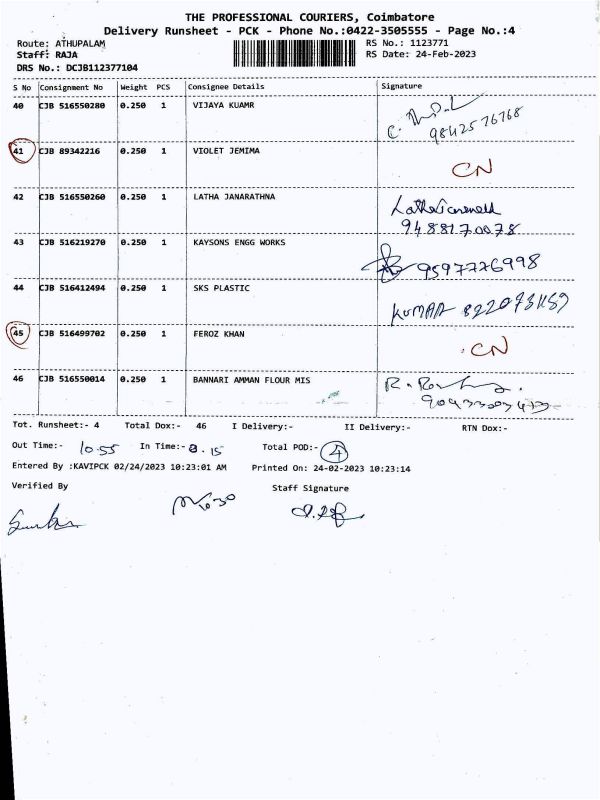 THE PROFESSIONAL COURIERS, Coimbatore
Delivery Runsheet - PCK - Phone No.:0422-3505555 - Page No.:4
Route: ATHUPALAM RS No.: 1123771
Staff: RAJA RS Date: 24-Feb-2023
DRS No.: DCJB112377104
S No Consignment No Weight PCS Consignee Details Signature
40 CJB 516550280 0.250 1 VIJAYA KUAMR
9842576768
41 CJB 89342216 0.250 1 VIOLET JEMIMA
CN
42 CJB 516550260 0.250 1 LATHA JANARATHNA
9488170078
43 CJB 516219270 0.250 1 KAYSONS ENGG WORKS
9597726998
44 CJB 516412494 0.250 1 SKS PLASTIC
KUMAR
45 CJB 516499702 0.250 1 FEROZ KHAN
CN
46 CJB 516550014 0.250 1 BANNARI AMMAN FLOUR MIS
Tot. Runsheet:- 4 Total Dox:- 46 I Delivery:- II Delivery:- RTN Dox:-
Out Time:- 10.55 In Time:- 8.15 Total POD:- 4
Entered By :KAVIPCK 02/24/2023 10:23:01 AM Printed On: 24-02-2023 10:23:14
Verified By Staff Signature